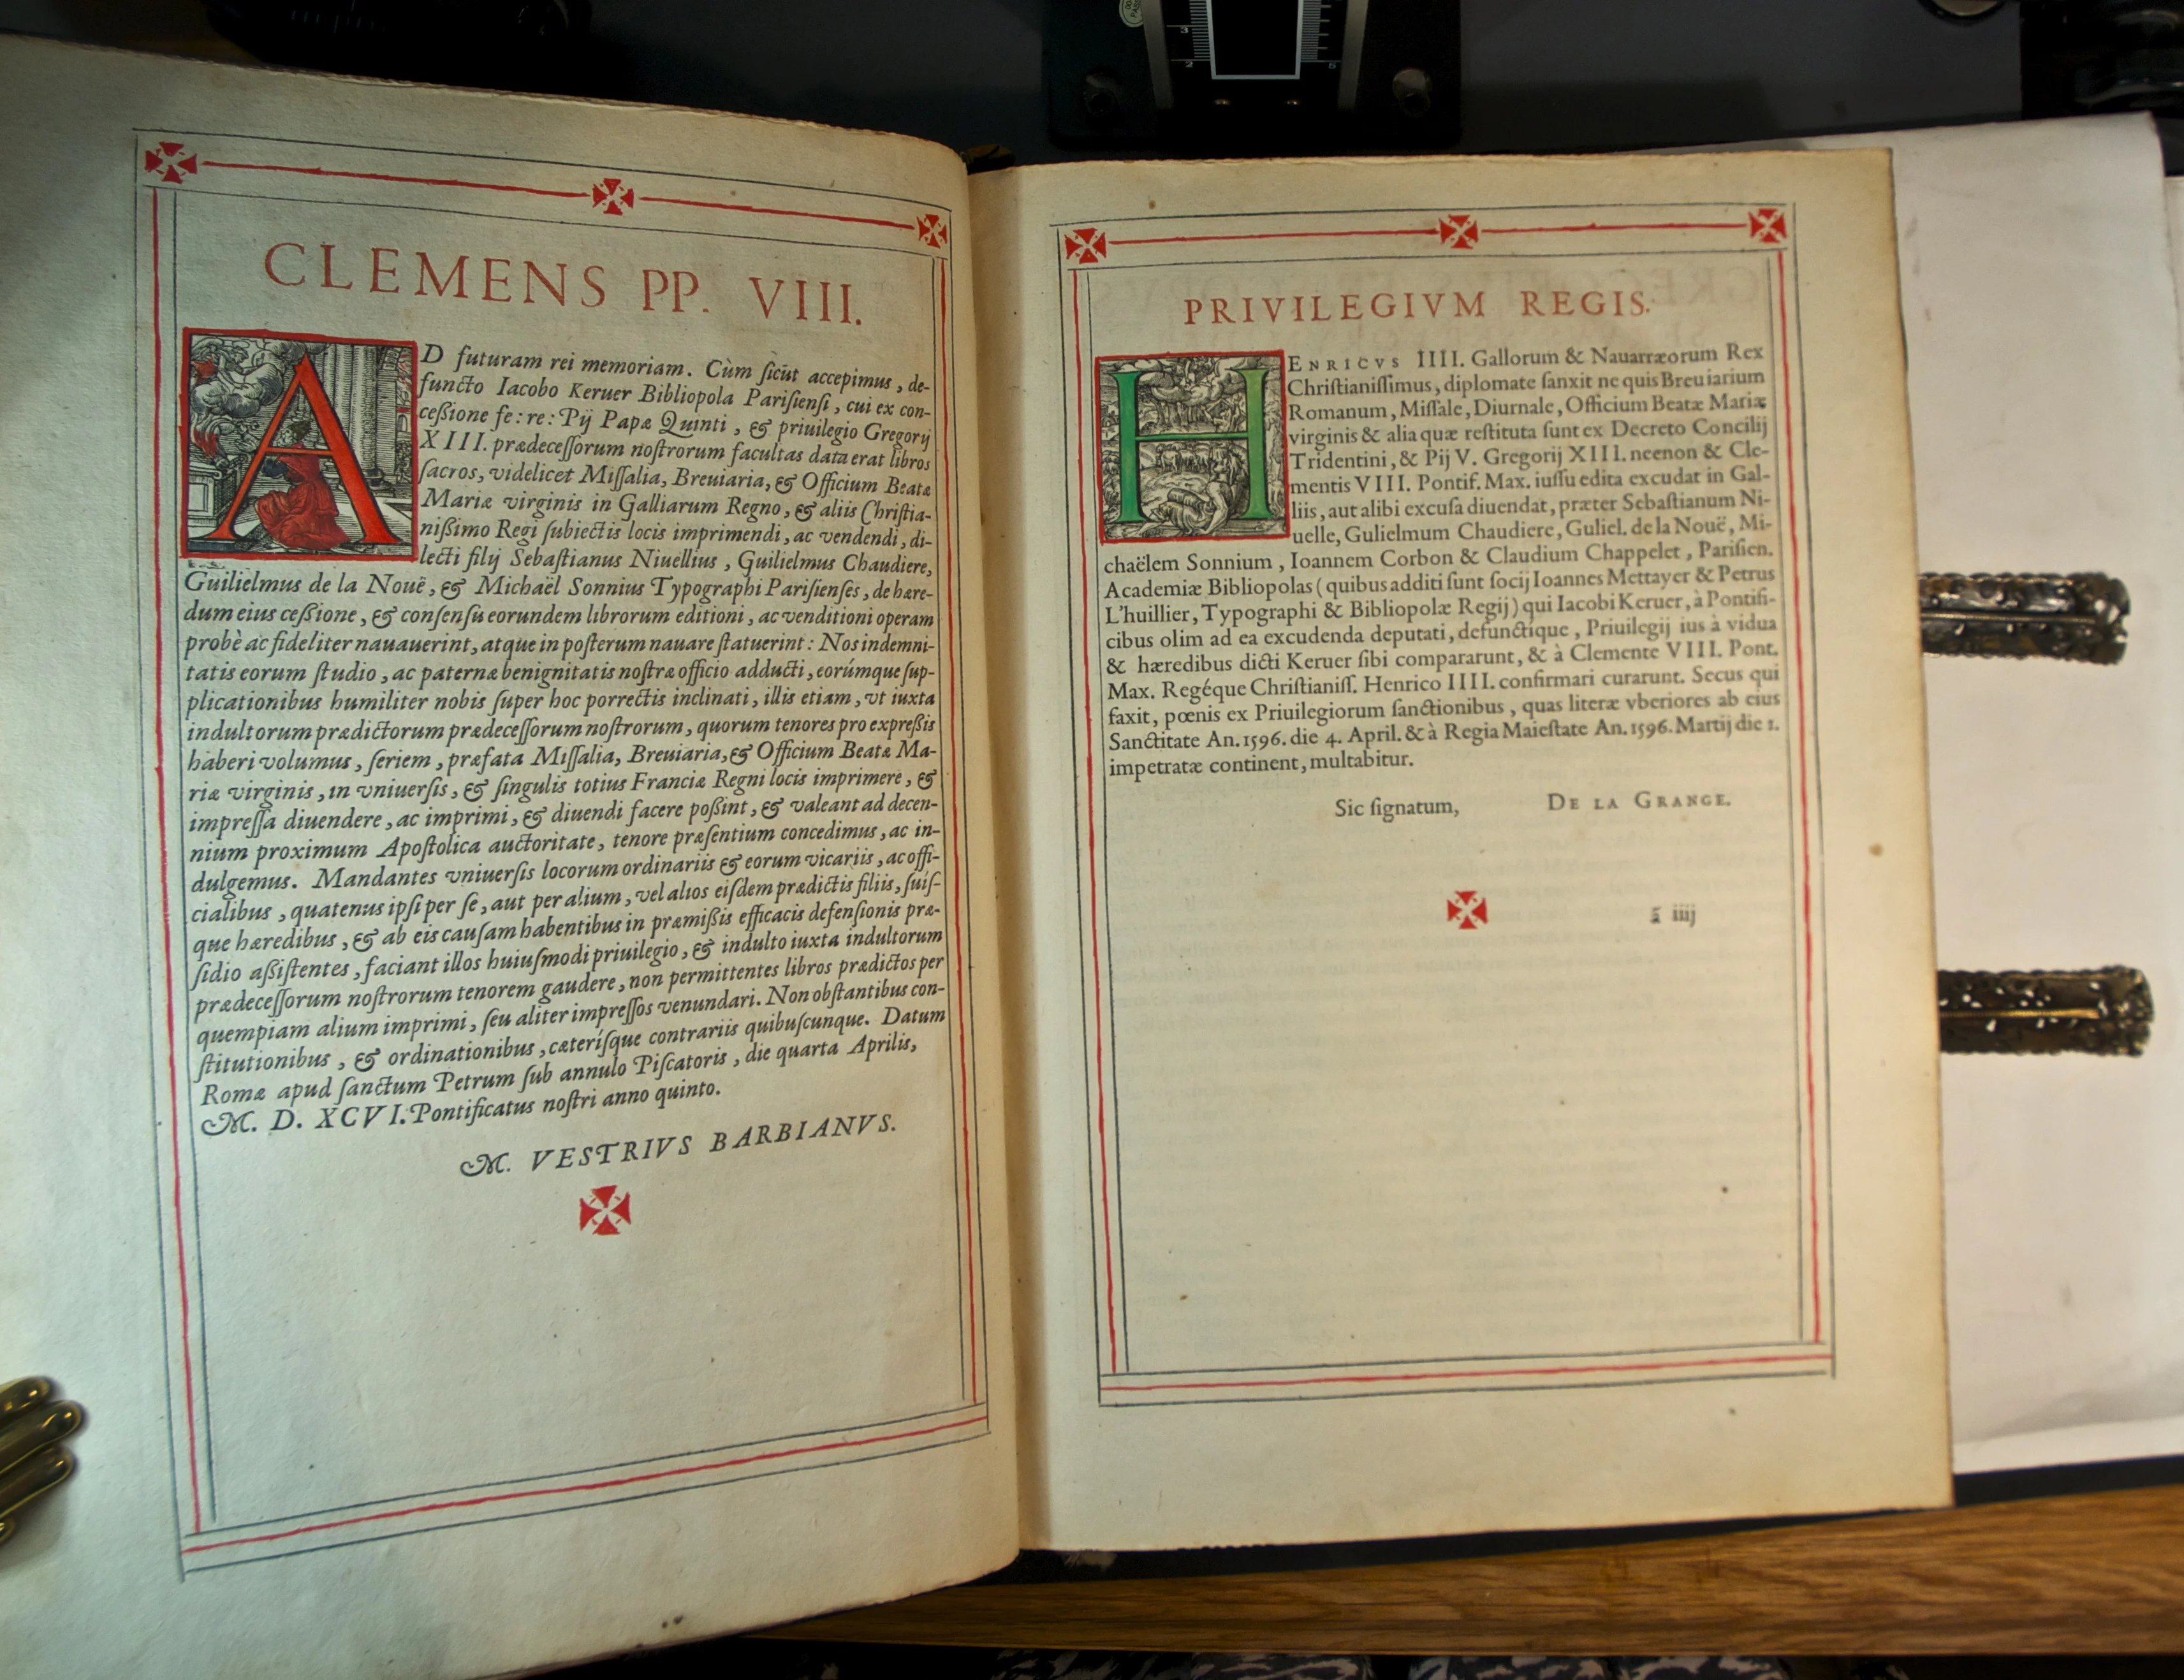 CLEMENS PP. VIII.
AD futuram rei memoriam. Cùm ſicut accepimus, de-
functo Iacobo Keruer Bibliopola Pariſienſi, cui ex con-
ceßione fe: re: Pij Papæ Quinti, & priuilegio Gregorij
XIII. prædeceſſorum noſtrorum facultas data erat libros
ſacros, videlicet Miſſalia, Breuiaria, & Officium Beatæ
Mariæ virginis in Galliarum Regno, & aliis Chriſtia-
nißimo Regi ſubiectis locis imprimendi, ac vendendi, di-
lecti filij Sebaſtianus Niuellius, Guilielmus Chaudiere,
Guilielmus de la Nouë, & Michaël Sonnius Typographi Pariſienſes, de hære-
dum eius ceßione, & conſenſu eorundem librorum editioni, ac venditioni operam
probè ac fideliter nauauerint, atque in poſterum nauare ſtatuerint: Nos indemni-
tatis eorum ſtudio, ac paternæ benignitatis noſtræ officio adducti, eorúmque ſup-
plicationibus humiliter nobis ſuper hoc porrectis inclinati, illis etiam, vt iuxta
indultorum prædictorum prædeceſſorum noſtrorum, quorum tenores pro expreßis
haberi volumus, ſeriem, præfata Miſſalia, Breuiaria, & Officium Beatæ Ma-
riæ virginis, in vniuerſis, & ſingulis totius Franciæ Regni locis imprimere, &
impreſſa diuendere, ac imprimi, & diuendi facere poßint, & valeant ad decen-
nium proximum Apoſtolica auctoritate, tenore præſentium concedimus, ac in-
dulgemus. Mandantes vniuerſis locorum ordinariis & eorum vicariis, ac offi-
cialibus, quatenus ipſi per ſe, aut per alium, vel alios eiſdem prædictis filiis, ſuiſ-
que hæredibus, & ab eis cauſam habentibus in præmißis efficacis defenſionis præ-
ſidio aßiſtentes, faciant illos huiuſmodi priuilegio, & indulto iuxta indultorum
prædeceſſorum noſtrorum tenorem gaudere, non permittentes libros prædictos per
quempiam alium imprimi, ſeu aliter impreſſos venundari. Non obſtantibus con-
ſtitutionibus, & ordinationibus, cæteríſque contrariis quibuſcunque. Datum
Romæ apud ſanctum Petrum ſub annulo Piſcatoris, die quarta Aprilis,
M. D. XCVI. Pontificatus noſtri anno quinto.
M. VESTRIVS BARBIANVS.
PRIVILEGIVM REGIS.
HENRICVS IIII. Gallorum & Nauarræorum Rex
Chriſtianiſſimus, diplomate ſanxit ne quis Breuiarium
Romanum, Miſſale, Diurnale, Officium Beatæ Mariæ
virginis & alia quæ reſtituta ſunt ex Decreto Concilij
Tridentini, & Pij V. Gregorij XIII. necnon & Cle-
mentis VIII. Pontif. Max. iuſſu edita excudat in Gal-
liis, aut alibi excuſa diuendat, præter Sebaſtianum Ni-
uelle, Gulielmum Chaudiere, Guliel. de la Nouë, Mi-
chaëlem Sonnium, Ioannem Corbon & Claudium Chappelet, Pariſien.
Academiæ Bibliopolas (quibus additi ſunt ſocij Ioannes Mettayer & Petrus
L'huillier, Typographi & Bibliopolæ Regij) qui Iacobi Keruer, à Pontifi-
cibus olim ad ea excudenda deputati, defunctique, Priuilegij ius à vidua
& hæredibus dicti Keruer ſibi compararunt, & à Clemente VIII. Pont.
Max. Regéque Chriſtianiſſ. Henrico IIII. confirmari curarunt. Secus qui
faxit, pœnis ex Priuilegiorum ſanctionibus, quas literæ vberiores ab eius
Sanctitate An. 1596. die 4. April. & à Regia Maieſtate An. 1596. Martij die 1.
impetratæ continent, multabitur.
Sic ſignatum, DE LA GRANGE.
ã iiij